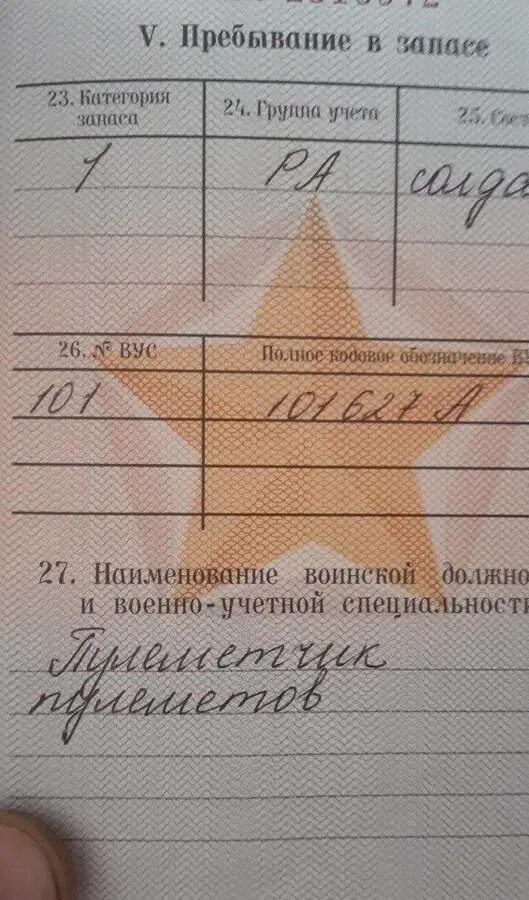 V. Пребывание в запасе
23. Категория запаса
24. Группа учета
25.
1
РА
26. № ВУС
Полное кодовое обозначение
101
101627 А
27. Наименование воинской
и военно-учетной
Пулеметчик
пулеметов